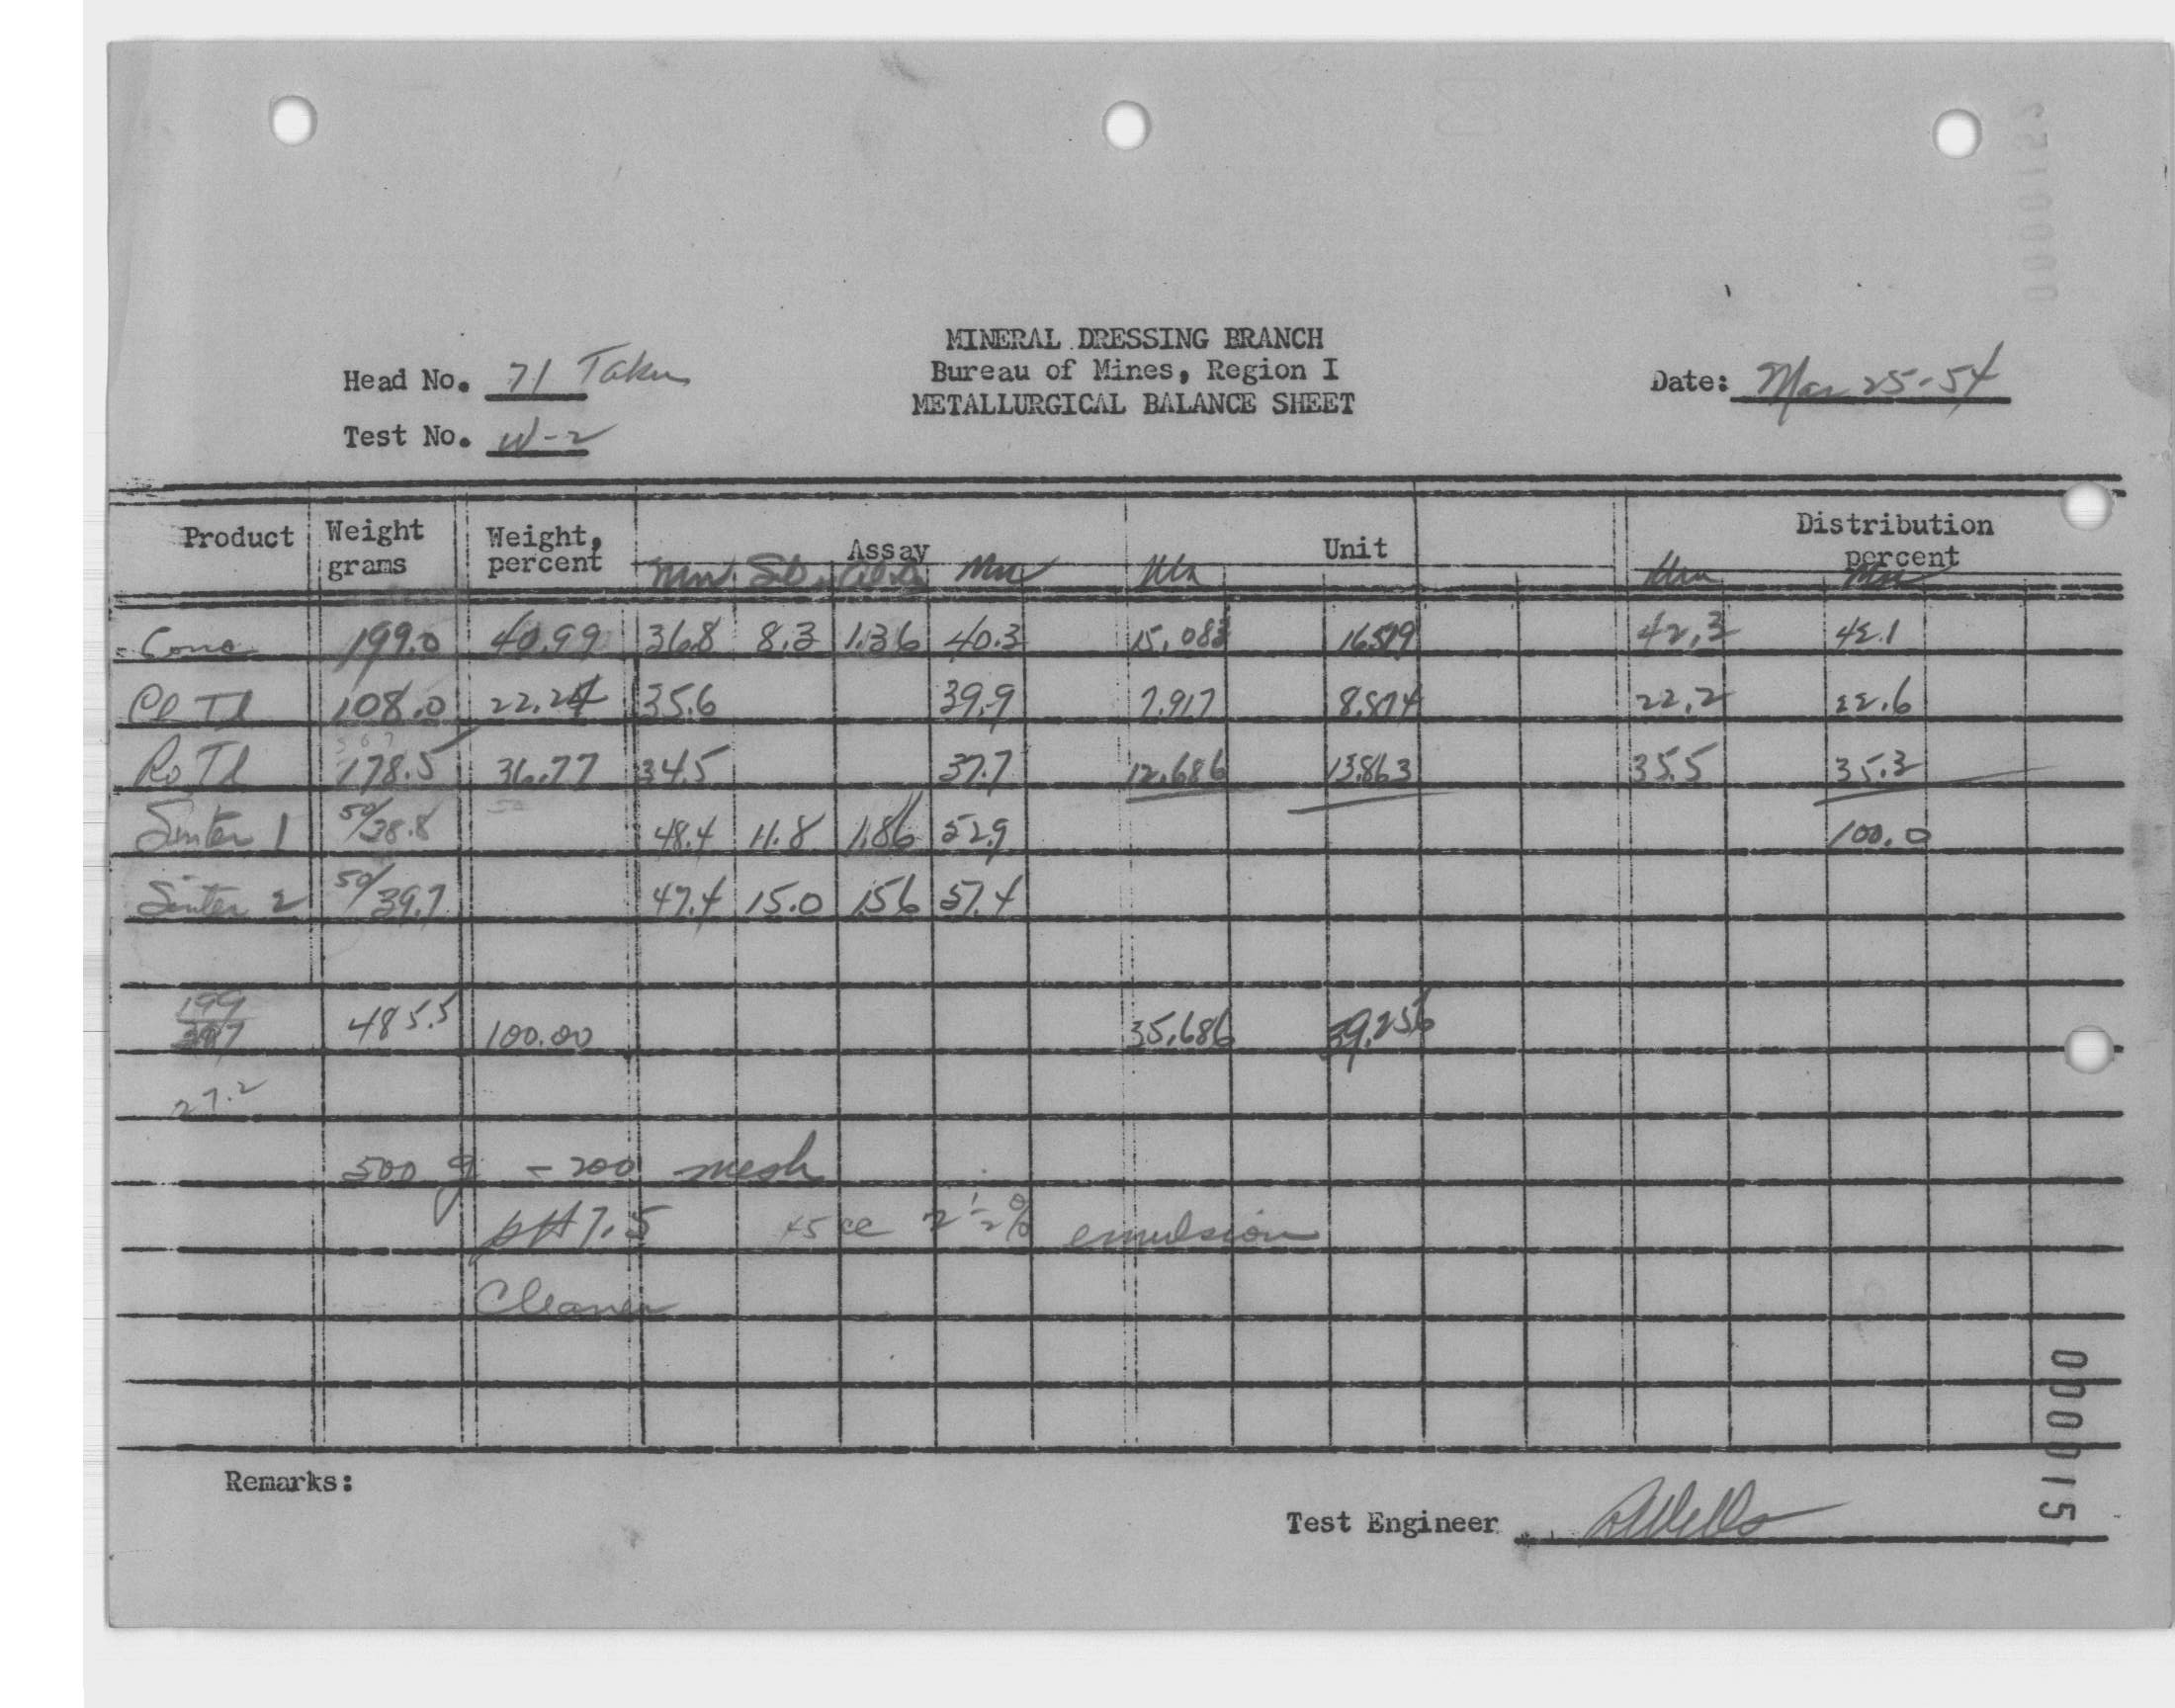 MINERAL DRESSING BRANCH
Head No. 71 Taku Bureau of Mines, Region I Date: Mar 25-54
METALLURGICAL BALANCE SHEET
Test No. W-2
Product Weight grams Weight, percent Assay Unit Distribution percent
Mn Mn Mn Mn Mn
Conc 199.0 40.99 36.8 8.3 1.36 40.3 15,083 16.519 42.3 42.1
Cl Tl 108.0 22.24 35.6 39.9 7.917 8.874 22.2 22.6
Ro Tl 178.5 36.77 34.5 37.7 12.686 13.863 35.5 35.3
Sinter 1 50/38.8 48.4 11.8 1.86 52.9 100.0
Sinter 2 50/39.7 47.4 15.0 1.56 57.4
199
397 485.5 100.00 35.686 39.256
27.2
500 g - 200 mesh
pH 7.5 45 cc 2 1/2 % emulsion
Cleaner
Remarks:
Test Engineer
000015